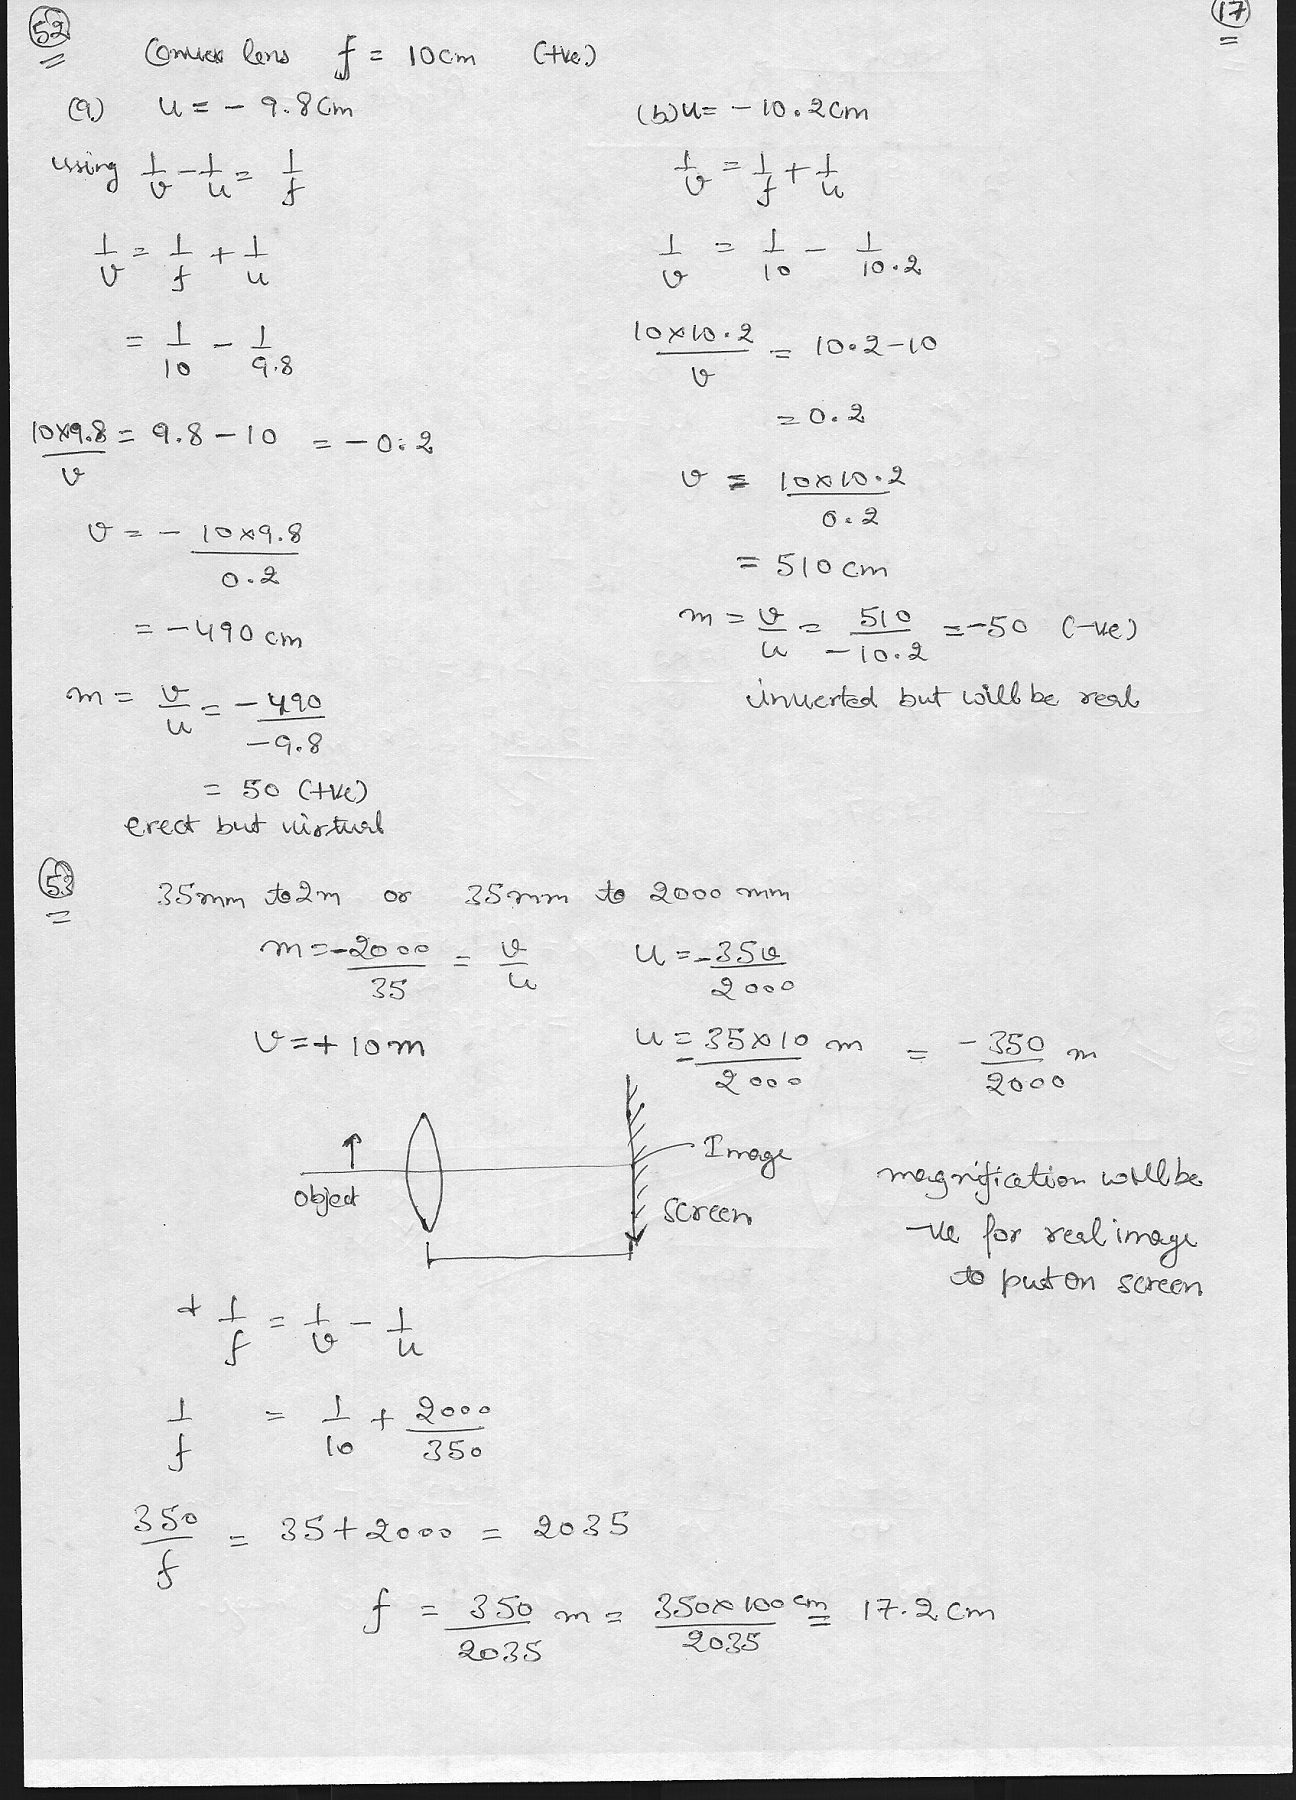 17
52
Convex lens f = 10cm (+ve)
(a) u = - 9.8cm
using 1/v - 1/u = 1/f
1/v = 1/f + 1/u
= 1/10 - 1/9.8
10×9.8/v = 9.8-10 = -0.2
v = - 10×9.8/0.2
= -490 cm
m = v/u = -490/-9.8
= 50 (+ve)
erect but virtual
(b) u= -10.2cm
1/v = 1/f + 1/u
1/v = 1/10 - 1/10.2
10×10.2/v = 10.2-10
= 0.2
v = 10×10.2/0.2
= 510 cm
m = v/u = 510/-10.2 = -50 (-ve)
inverted but will be real
53
35mm to 2m or 35mm to 2000 mm
m = -2000/35 = v/u u = -35v/2000
v = + 10m u = -35×10/2000 m = -350/2000 m
object
Image
screen
magnification will be
-ve for real image
to put on screen
+ 1/f = 1/v - 1/u
1/f = 1/10 + 2000/350
350/f = 35+2000 = 2035
f = 350/2035 m = 350×100 cm/2035 = 17.2 cm